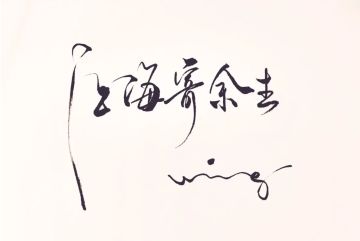 上海寄余生
wing